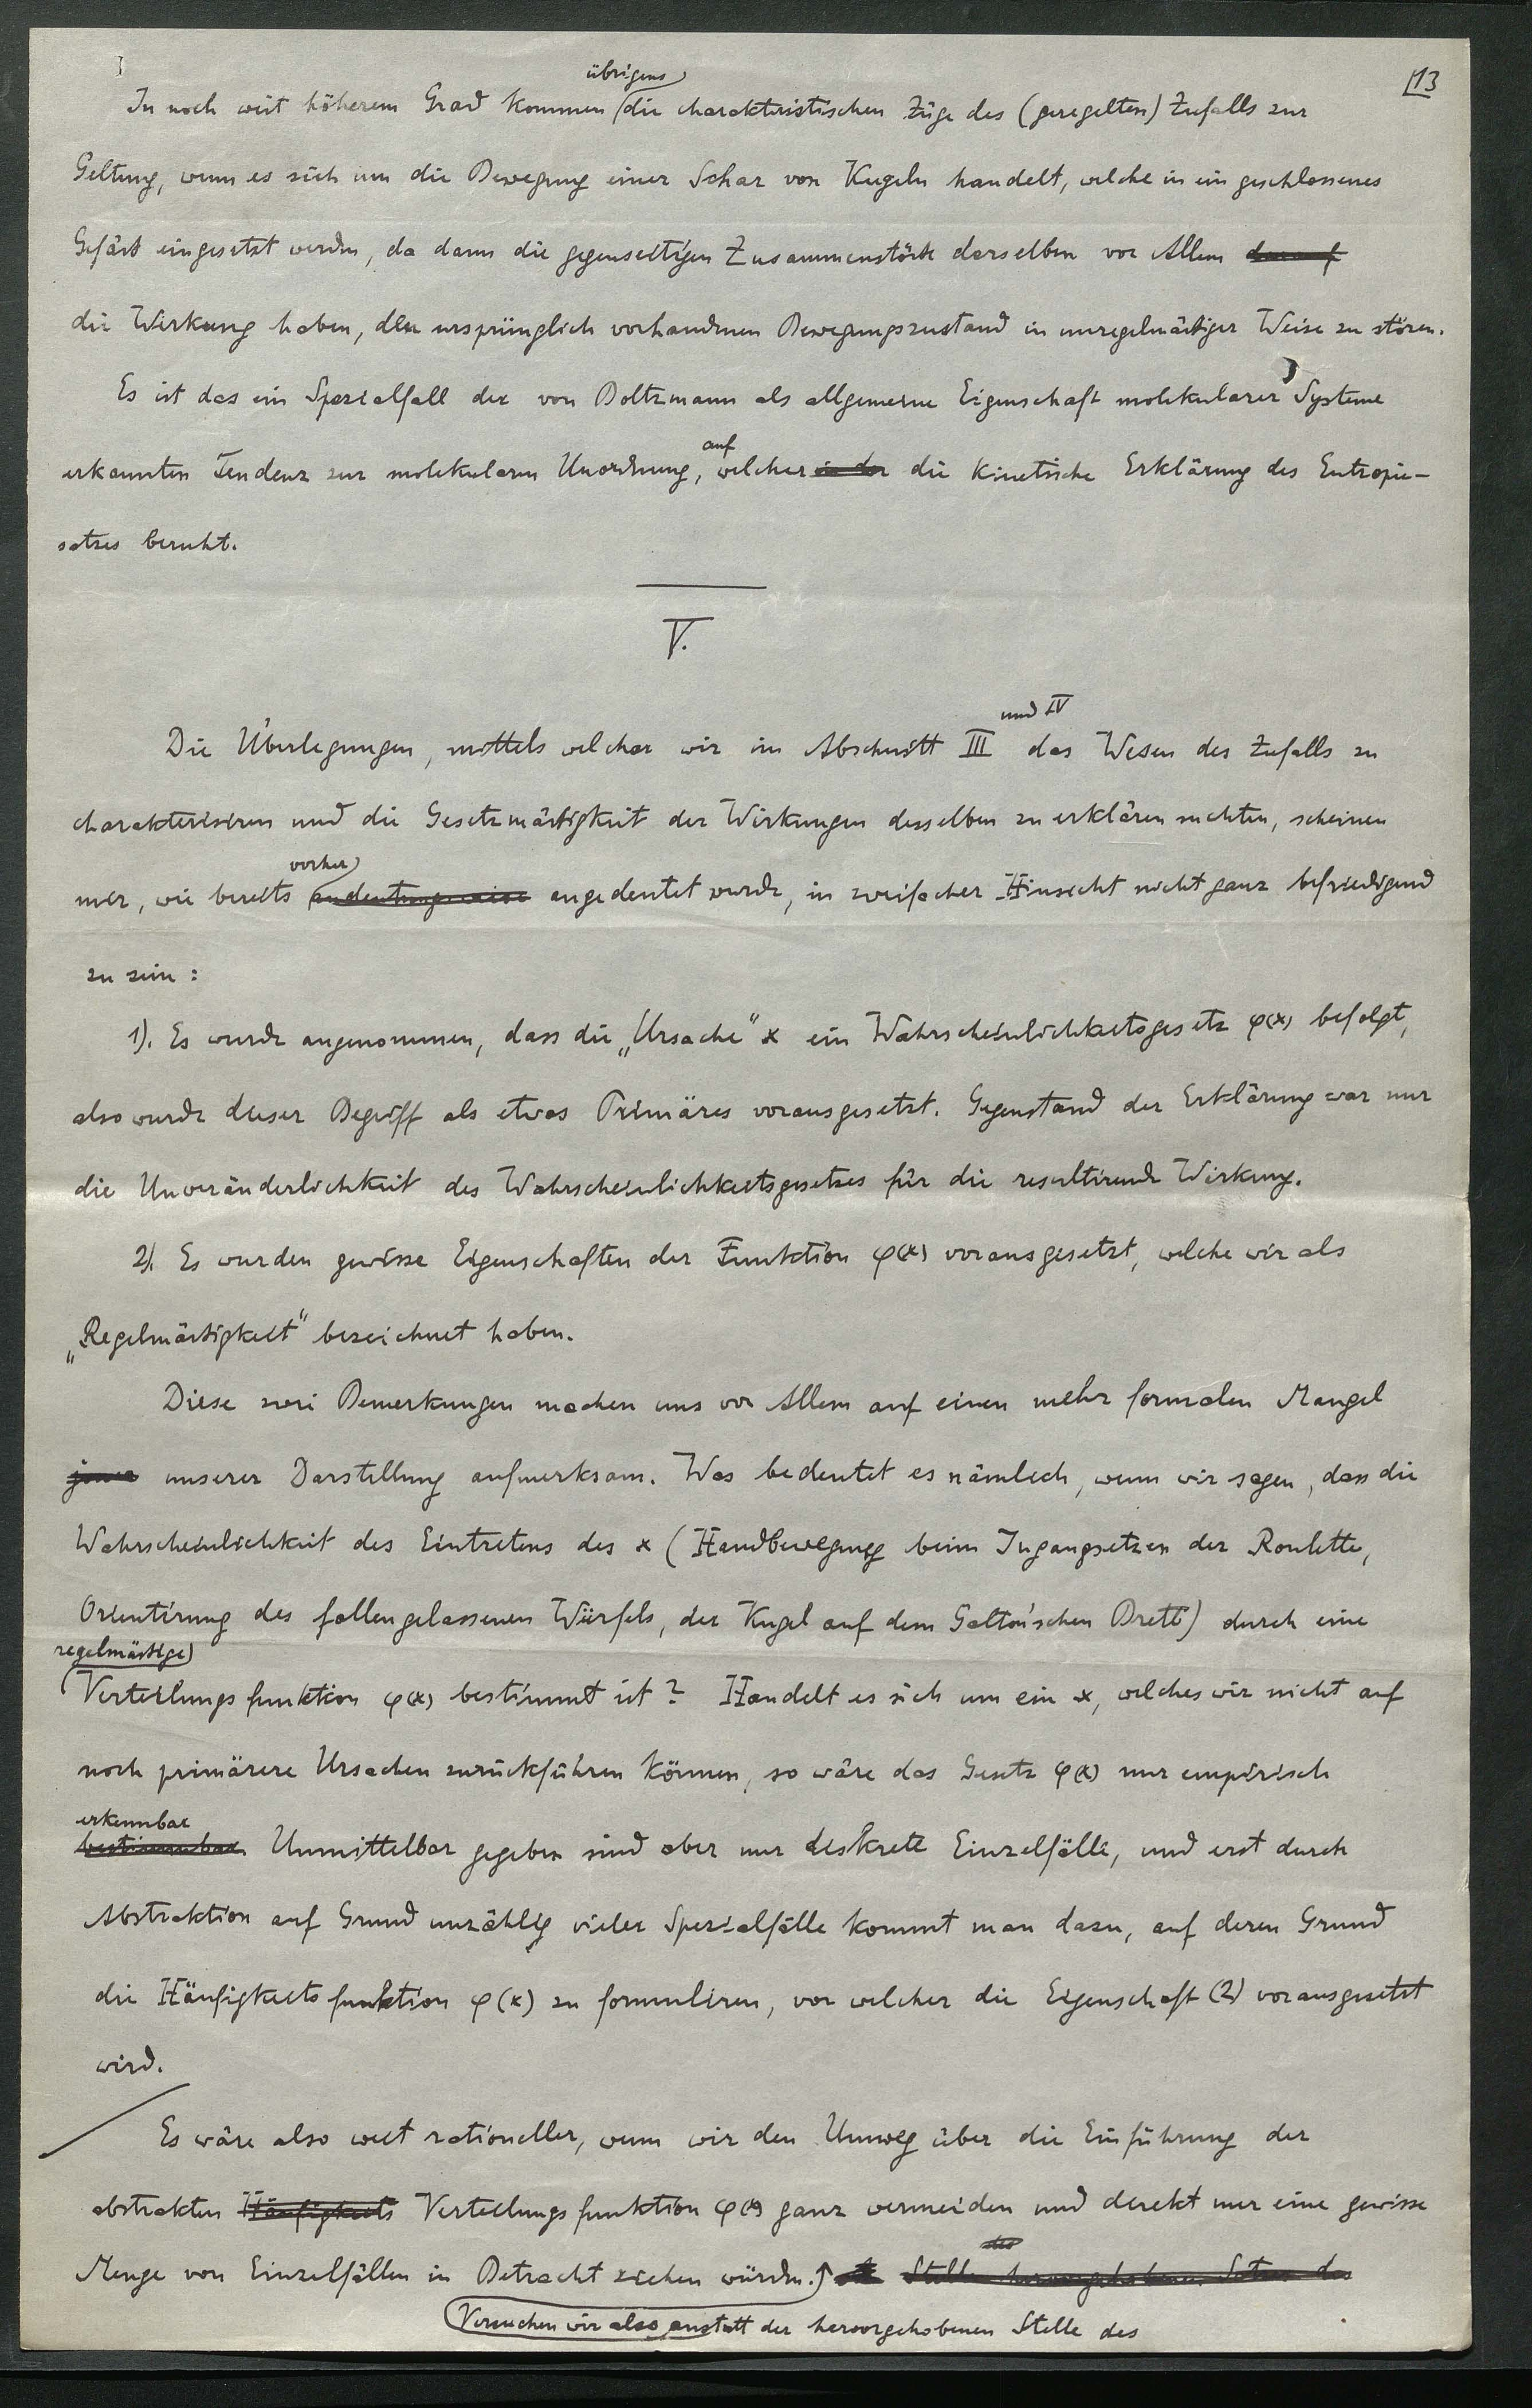 13
übrigens
In noch weit höherem Grad kommen die charakteristischen Züge des (geregelten) Zufalls zur
Geltung, wenn es sich um die Bewegung einer Schar von Kugeln handelt, welche in ein geschlossenes
Gefäss eingesetzt werden, da dann die gegenseitigen Zusammenstösse derselben vor Allem darauf
die Wirkung haben, den ursprünglich vorhandenen Bewegungszustand in unregelmässiger Weise zu stören.
Es ist das ein Spezialfall der von Boltzmann als allgemeine Eigenschaft molekularer Systeme
auf
erkannten Tendenz zur molekularen Unordnung, welcher in der die kinetische Erklärung des Entropie-
satzes beruht.
V.
und IV
Die Überlegungen, mittels welcher wir im Abschnitt III das Wesen des Zufalls zu
charakterisiren und die Gesetzmässigkeit der Wirkungen desselben zu erklären suchten, scheinen
vorher
mir, wie bereits andeutungsweise angedeutet wurde, in zweifacher Hinsicht nicht ganz befriedigend
zu sein:
1). Es wurde angenommen, dass die „Ursache" x ein Wahrscheinlichkeitsgesetz φ(x) befolgt,
also wurde dieser Begriff als etwas Primäres vorausgesetzt. Gegenstand der Erklärung war nur
die Unveränderlichkeit des Wahrscheinlichkeitsgesetzes für die resultirende Wirkung.
2). Es wurden gewisse Eigenschaften der Funktion φ(x) vorausgesetzt, welche wir als
„Regelmässigkeit" bezeichnet haben.
Diese zwei Bemerkungen machen uns vor Allem auf einen mehr formalen Mangel
jener unserer Darstellung aufmerksam. Was bedeutet es nämlich, wenn wir sagen, dass die
Wahrscheinlichkeit des Eintretens des x (Handbewegung beim Ingangsetzen der Roulette,
Orientirung des fallengelassenen Würfels, der Kugel auf dem Galton'schen Brett) durch eine
regelmässige
Verteilungsfunktion φ(x) bestimmt ist? Handelt es sich um ein x, welches wir nicht auf
noch primärere Ursachen zurückführen können, so wäre das Gesetz φ(x) nur empirisch
erkennbar
bestimmbar. Unmittelbar gegeben sind aber nur diskrete Einzelfälle, und erst durch
Abstraktion auf Grund unzählig vieler Spezialfälle kommt man dazu, auf deren Grund
die Häufigkeitsfunktion φ(x) zu formuliren, von welcher die Eigenschaft (2) vorausgesetzt
wird.
Es wäre also weit rationeller, wenn wir den Umweg über die Einführung der
abstrakten Häufigkeits Verteilungsfunktion φ(x) ganz vermeiden und direkt nur eine gewisse
des
Menge von Einzelfällen in Betracht ziehen würden. Stelle hervorgehobenen Satzes des
Versuchen wir also anstatt der hervorgehobenen Stelle des